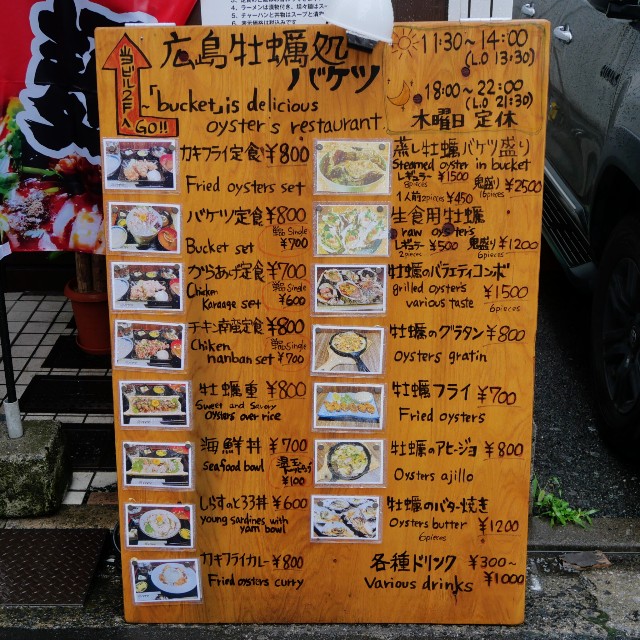 広島牡蠣処
バケツ
当ビル2Fへ
GO!!
~「bucket」is delicious
oyster's restaurant
11:30~14:00
(L.O 13:30)
18:00~22:00
(L.O 21:30)
木曜日 定休
カキフライ定食 ¥800
Fried oysters set
バケツ定食 ¥800
Bucket set
単品 Single
¥700
からあげ定食 ¥700
Chicken
Karaage set
単品 Single
¥600
チキン南蛮定食 ¥800
Chiken
nanban set
単品 Single
¥700
牡蠣重 ¥800
Sweet and Savory
oysters over rice
海鮮丼 ¥700
seafood bowl
¥100
しらすのとろろ丼 ¥600
young sardines with
yam bowl
カキフライカレー ¥800
Fried oysters curry
蒸し牡蠣バケツ盛り
Steamed oyster in bucket
レギュラー ¥1500
8pieces
鬼盛り ¥2500
16pieces
1人前2pieces ¥450
生食用牡蠣
raw oyster's
レギュラー ¥500
2pieces
鬼盛り ¥1200
6pieces
牡蠣のバラエティコンボ
grilled oyster's
various taste
¥1500
6pieces
牡蠣のグラタン ¥800
Oysters gratin
牡蠣フライ ¥700
Fried oysters
牡蠣のアヒージョ ¥800
Oysters ajillo
牡蠣のバター焼き
Oysters butter ¥1200
6pieces
各種ドリンク ¥300~
Various drinks ¥1000